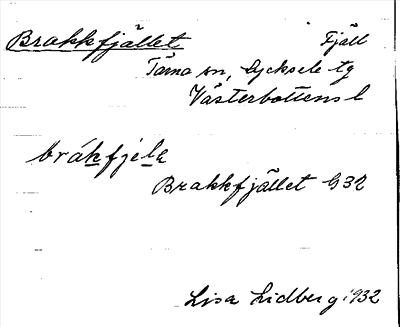 Brakkfjället Fjäll
Tärna sn, Lycksele tg
Västerbottens l
bráhfjela
Brakkfjället G32
Lisa Lidberg 1932